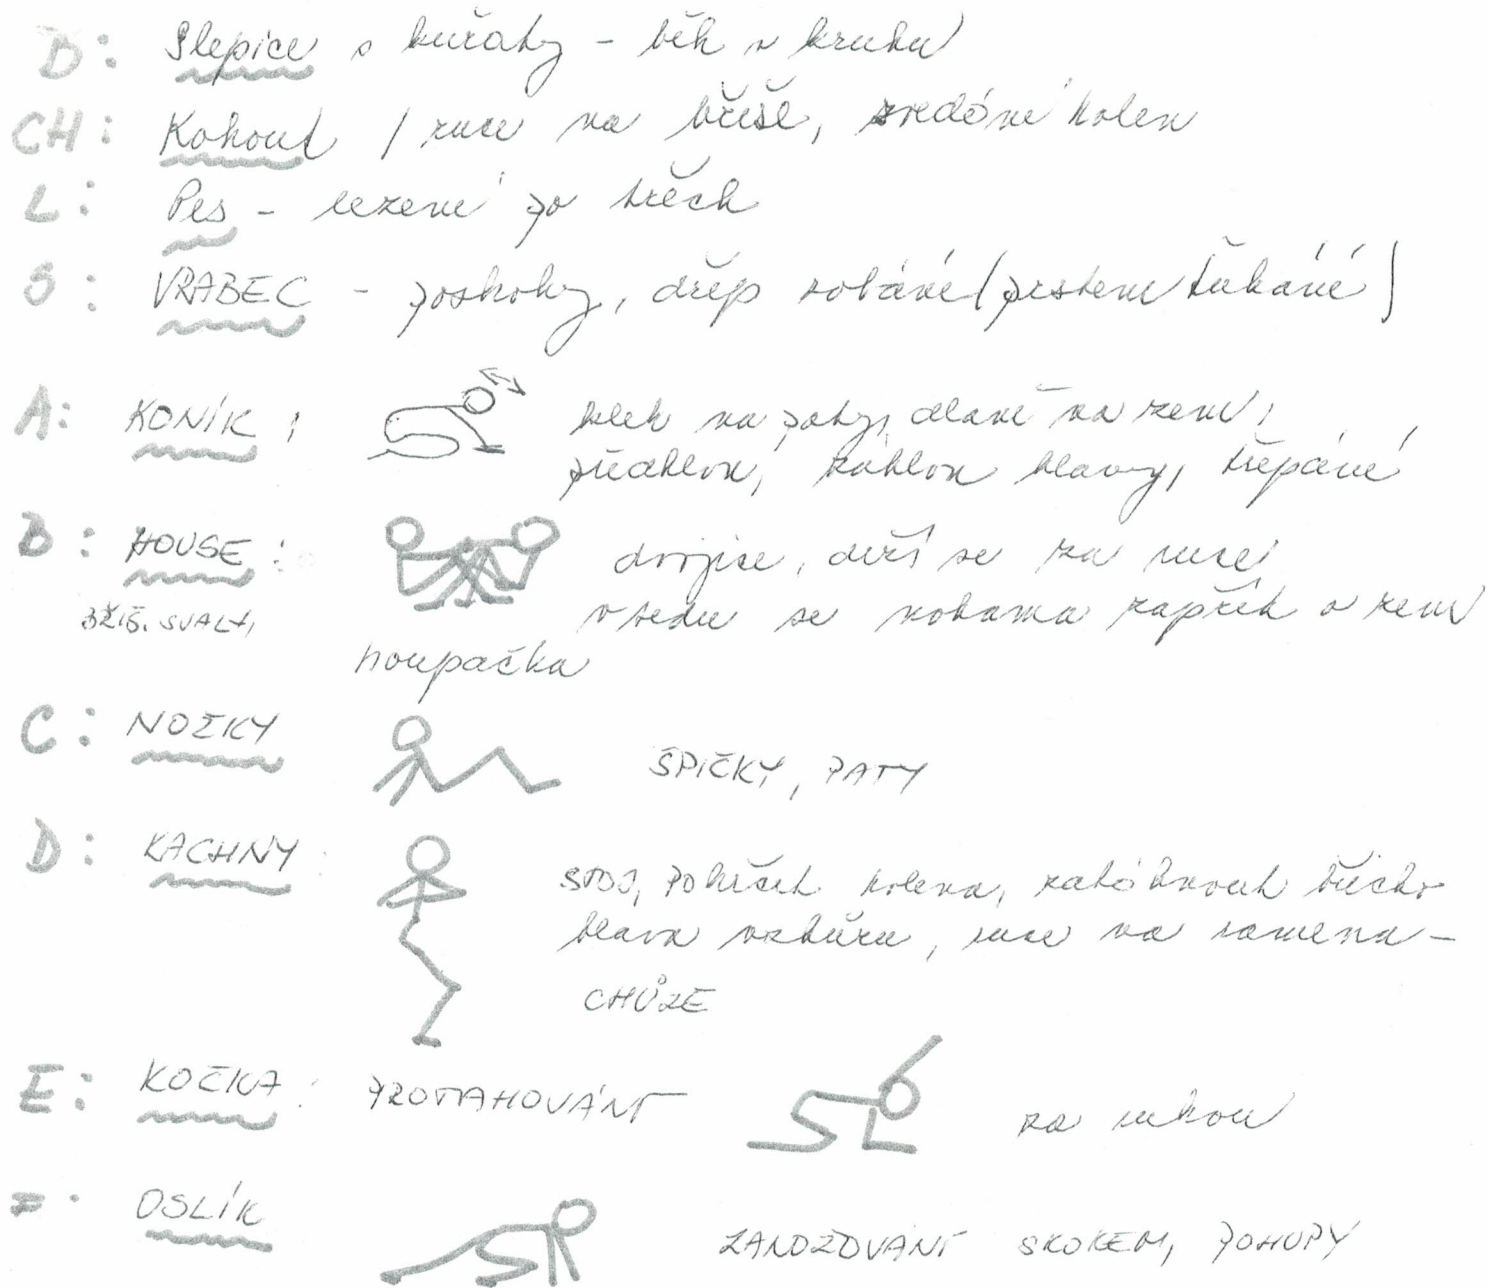 B: Slepice s kuřaty - běh v kruhu
CH: Kohout / ruce na břiše, zvedání kolen
L: Pes - lezení po třech
S: VRABEC - poskoky, dřep zobání (prstem ťukání)
A: KONÍK : klek na paty, dlaně na zemi,
předklon, záklon hlavy, třepání
B: HOUSE : dvojice, drží se za ruce
BŘIŠ. SVALY, v sedu se nohama zapřít o zem
houpačka
C: NOŽKY ŠPIČKY, PATY
D: KACHNY : STOJ, pokrčit kolena, zatáhnout břicho
hlava vzhůru, ruce na ramena -
CHŮZE
E: KOČKA : PROTAHOVÁNÍ za rukou
F: OSLÍK ZANOŽOVÁNÍ SKOKEM, POHUPY